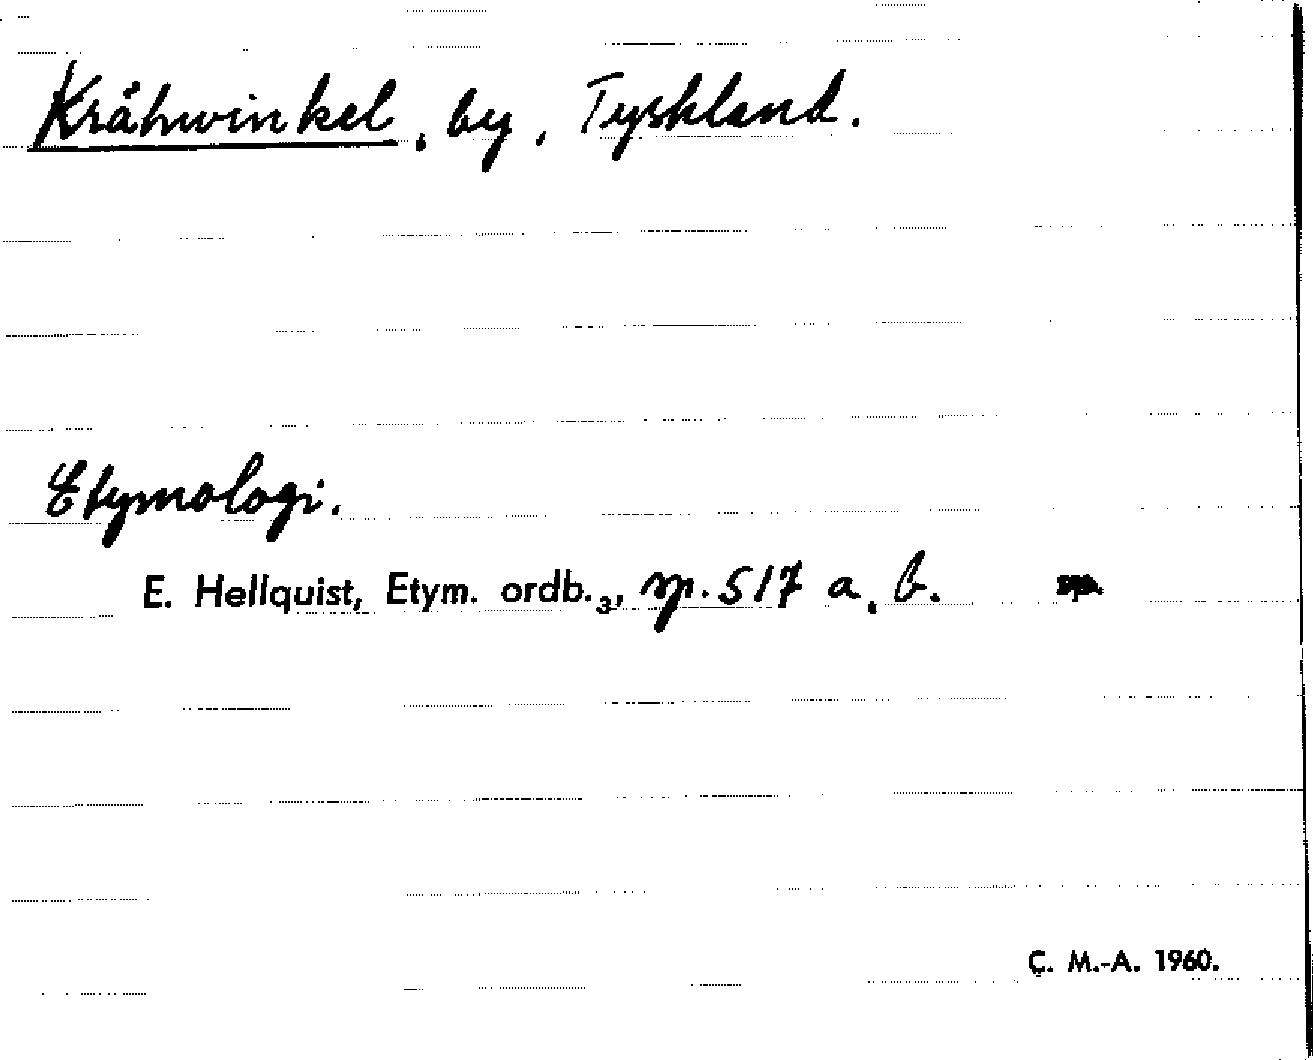 Krähwinkel, by, Tyskland.
Etymologi.
E. Hellquist, Etym. ordb.3, sp. 517 a, b.
C. M.-A. 1960.